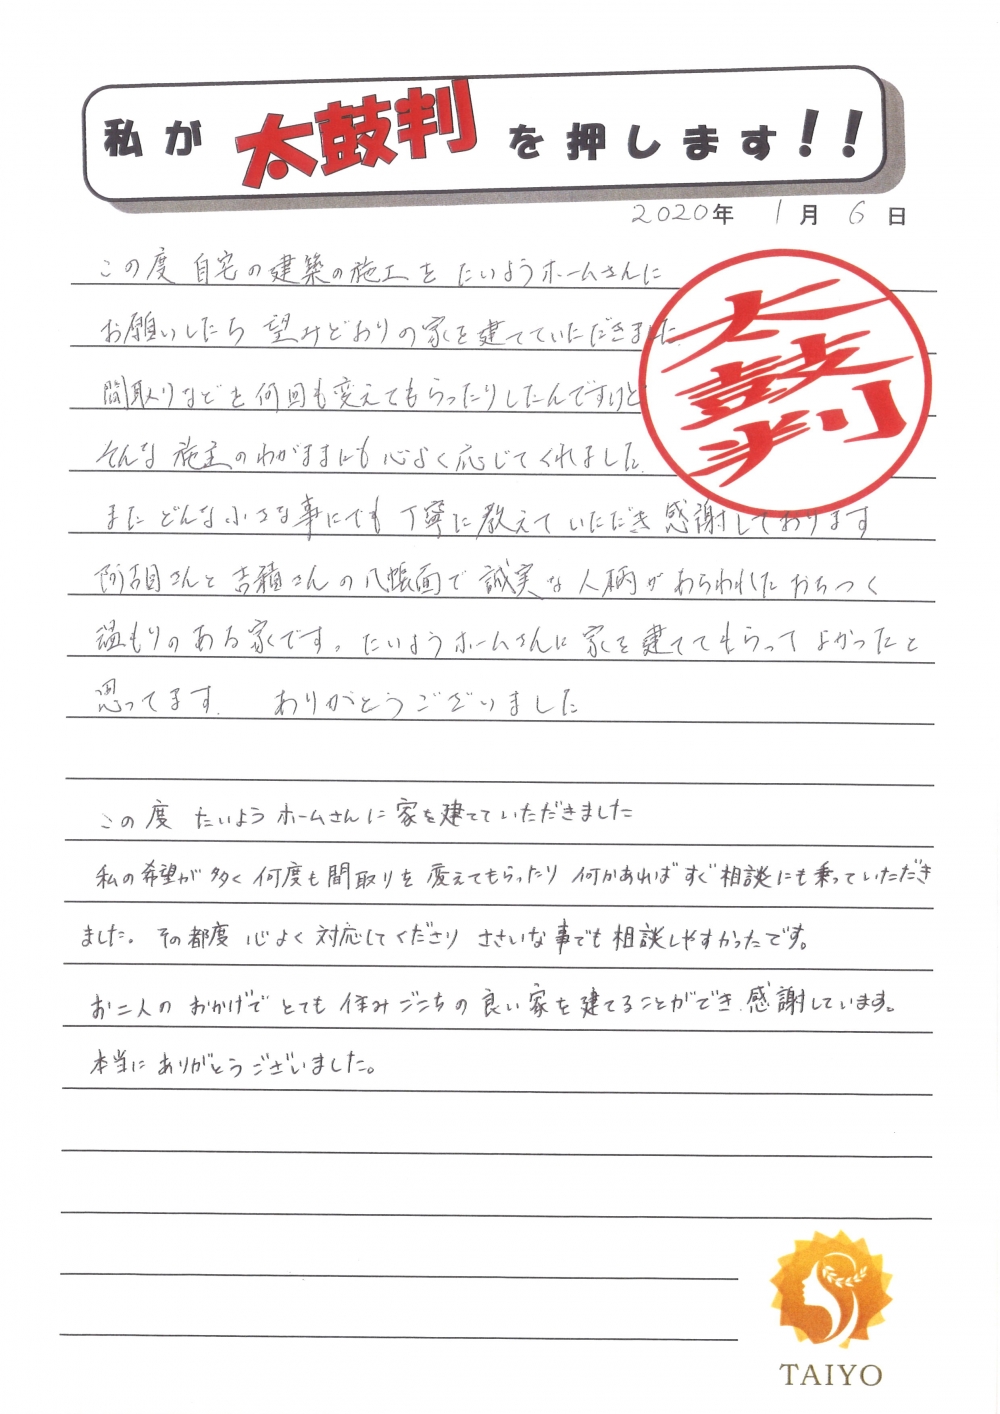 私が太鼓判を押します!!
2020年 1月 6日
この度 自宅の建築の施工を たいようホームさんに
お願いしたら 望みどおりの家を建てていただきました
太鼓判
間取りなどを何回も変えてもらったりしたんですけど
そんな施主のわがままにも心よく応じてくれました
またどんな小さな事にでも丁寧に教えていただき感謝しております
さんと吉積さんの八帳面で誠実な人柄があらわれたおちつく
温もりのある家です。たいようホームさんに家を建ててもらってよかったと
思ってます ありがとうございました
この度 たいようホームさんに家を建てていただきました
私の希望が多く何度も間取りを変えてもらったり何かあればすぐ相談にも乗っていただき
ました。その都度 心よく対応してくださり ささいな事でも相談しやすかったです。
お二人の おかげで とても 住みごこちの良い家を建てることができ 感謝しています。
本当に ありがとうございました。
TAIYO